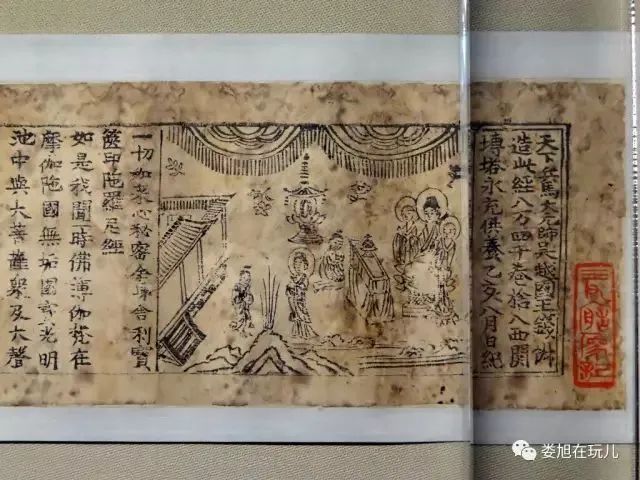 天下兵馬大元帥吳越國王錢俶
造此經八万四千卷捨入西關
塼塔永充供養乙亥八月日紀
一切如来心秘密全身舍利寶
篋印陀羅尼經
如是我聞一時佛薄伽梵在
摩伽陀國無垢園寶光明
池中與大菩薩衆及大聲
娄旭在玩儿